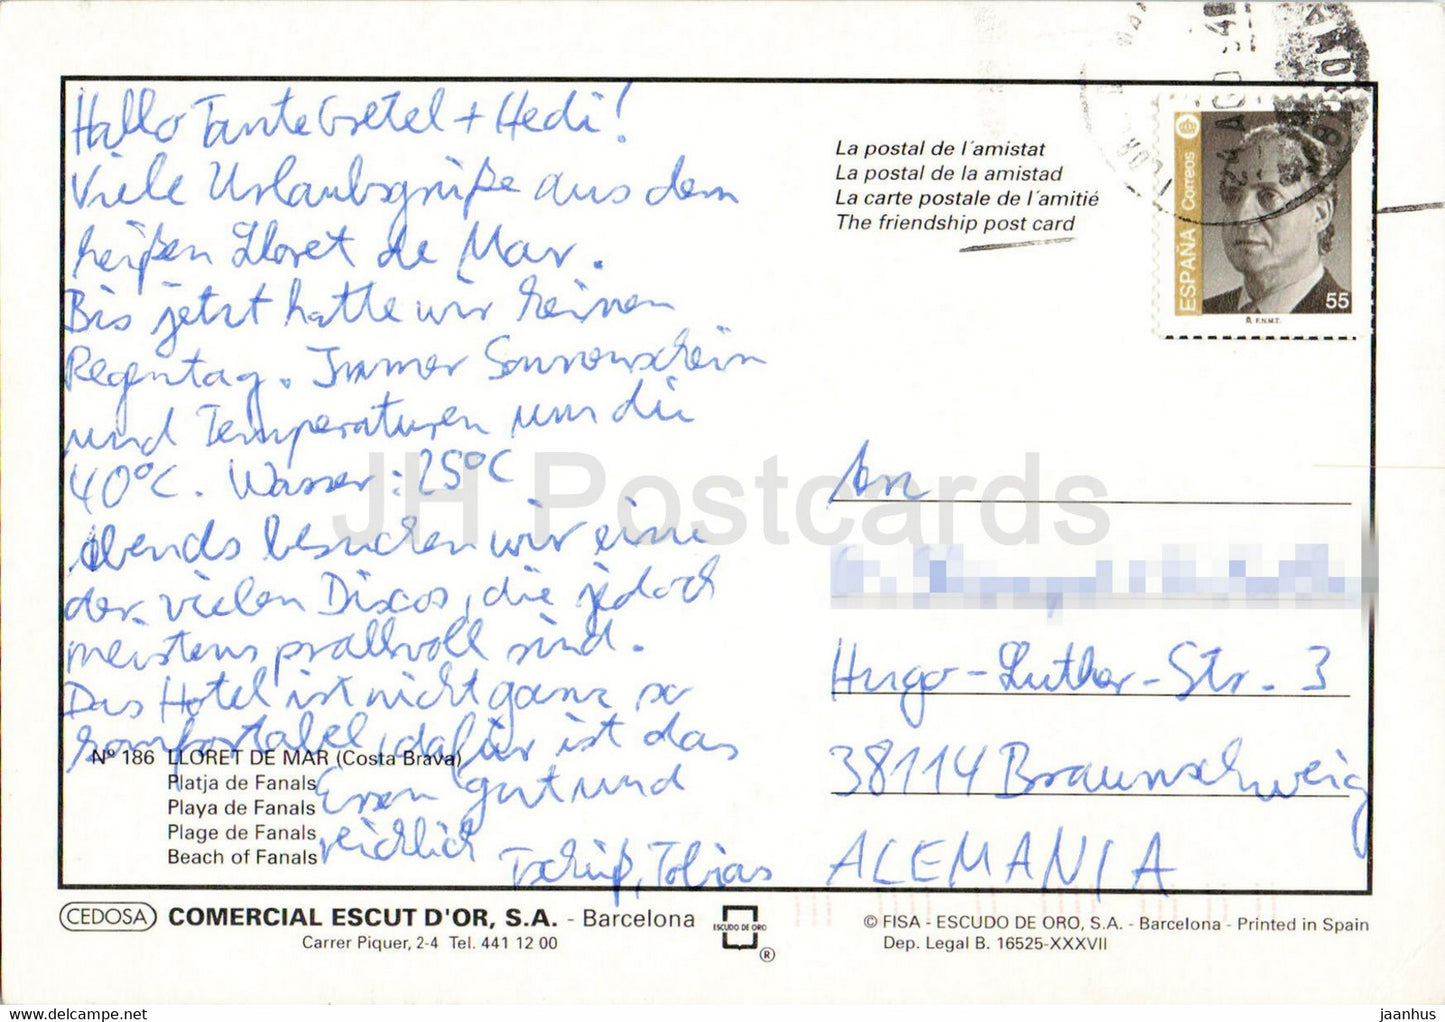 Hallo Tante Gretel + Hedi!
Viele Urlaubsgrüße aus dem
heißen Lloret de Mar.
Bis jetzt hatte wir keinen
Regentag. Immer Sonnenschein
und Temperaturen um die
40°C. Wasser: 25°C
Abends besuchen wir eine
der vielen Discos, die jedoch
meistens prallvoll sind.
Das Hotel ist nicht ganz so
komfortabel, dafür ist das
Essen gut und
reichlich
Tschüß, Tobias
Nº 186 LLORET DE MAR (Costa Brava)
Platja de Fanals
Playa de Fanals
Plage de Fanals
Beach of Fanals
La postal de l´amistat
La postal de la amistad
La carte postale de l´amitié
The friendship post card
ESPAÑA Correos
55
F.N.M.T.
An
Hugo-Luther-Str. 3
38114 Braunschweig
ALEMANIA
JH Postcards
CEDOSA COMERCIAL ESCUT D'OR, S.A. - Barcelona
Carrer Piquer, 2-4 Tel. 441 12 00
ESCUDO DE ORO
®
© FISA - ESCUDO DE ORO, S.A. - Barcelona - Printed in Spain
Dep. Legal B. 16525-XXXVII
HipPostcard.com
jaanhus